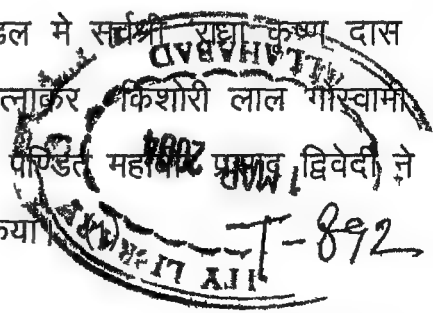 डल मे सर्वश्री राधा कृष्ण दास
त्नाकर किशोरी लाल गोस्वामी
पण्डित महावीर प्रसाद द्विवेदी ने
किया।
T-892
ALLAHABAD